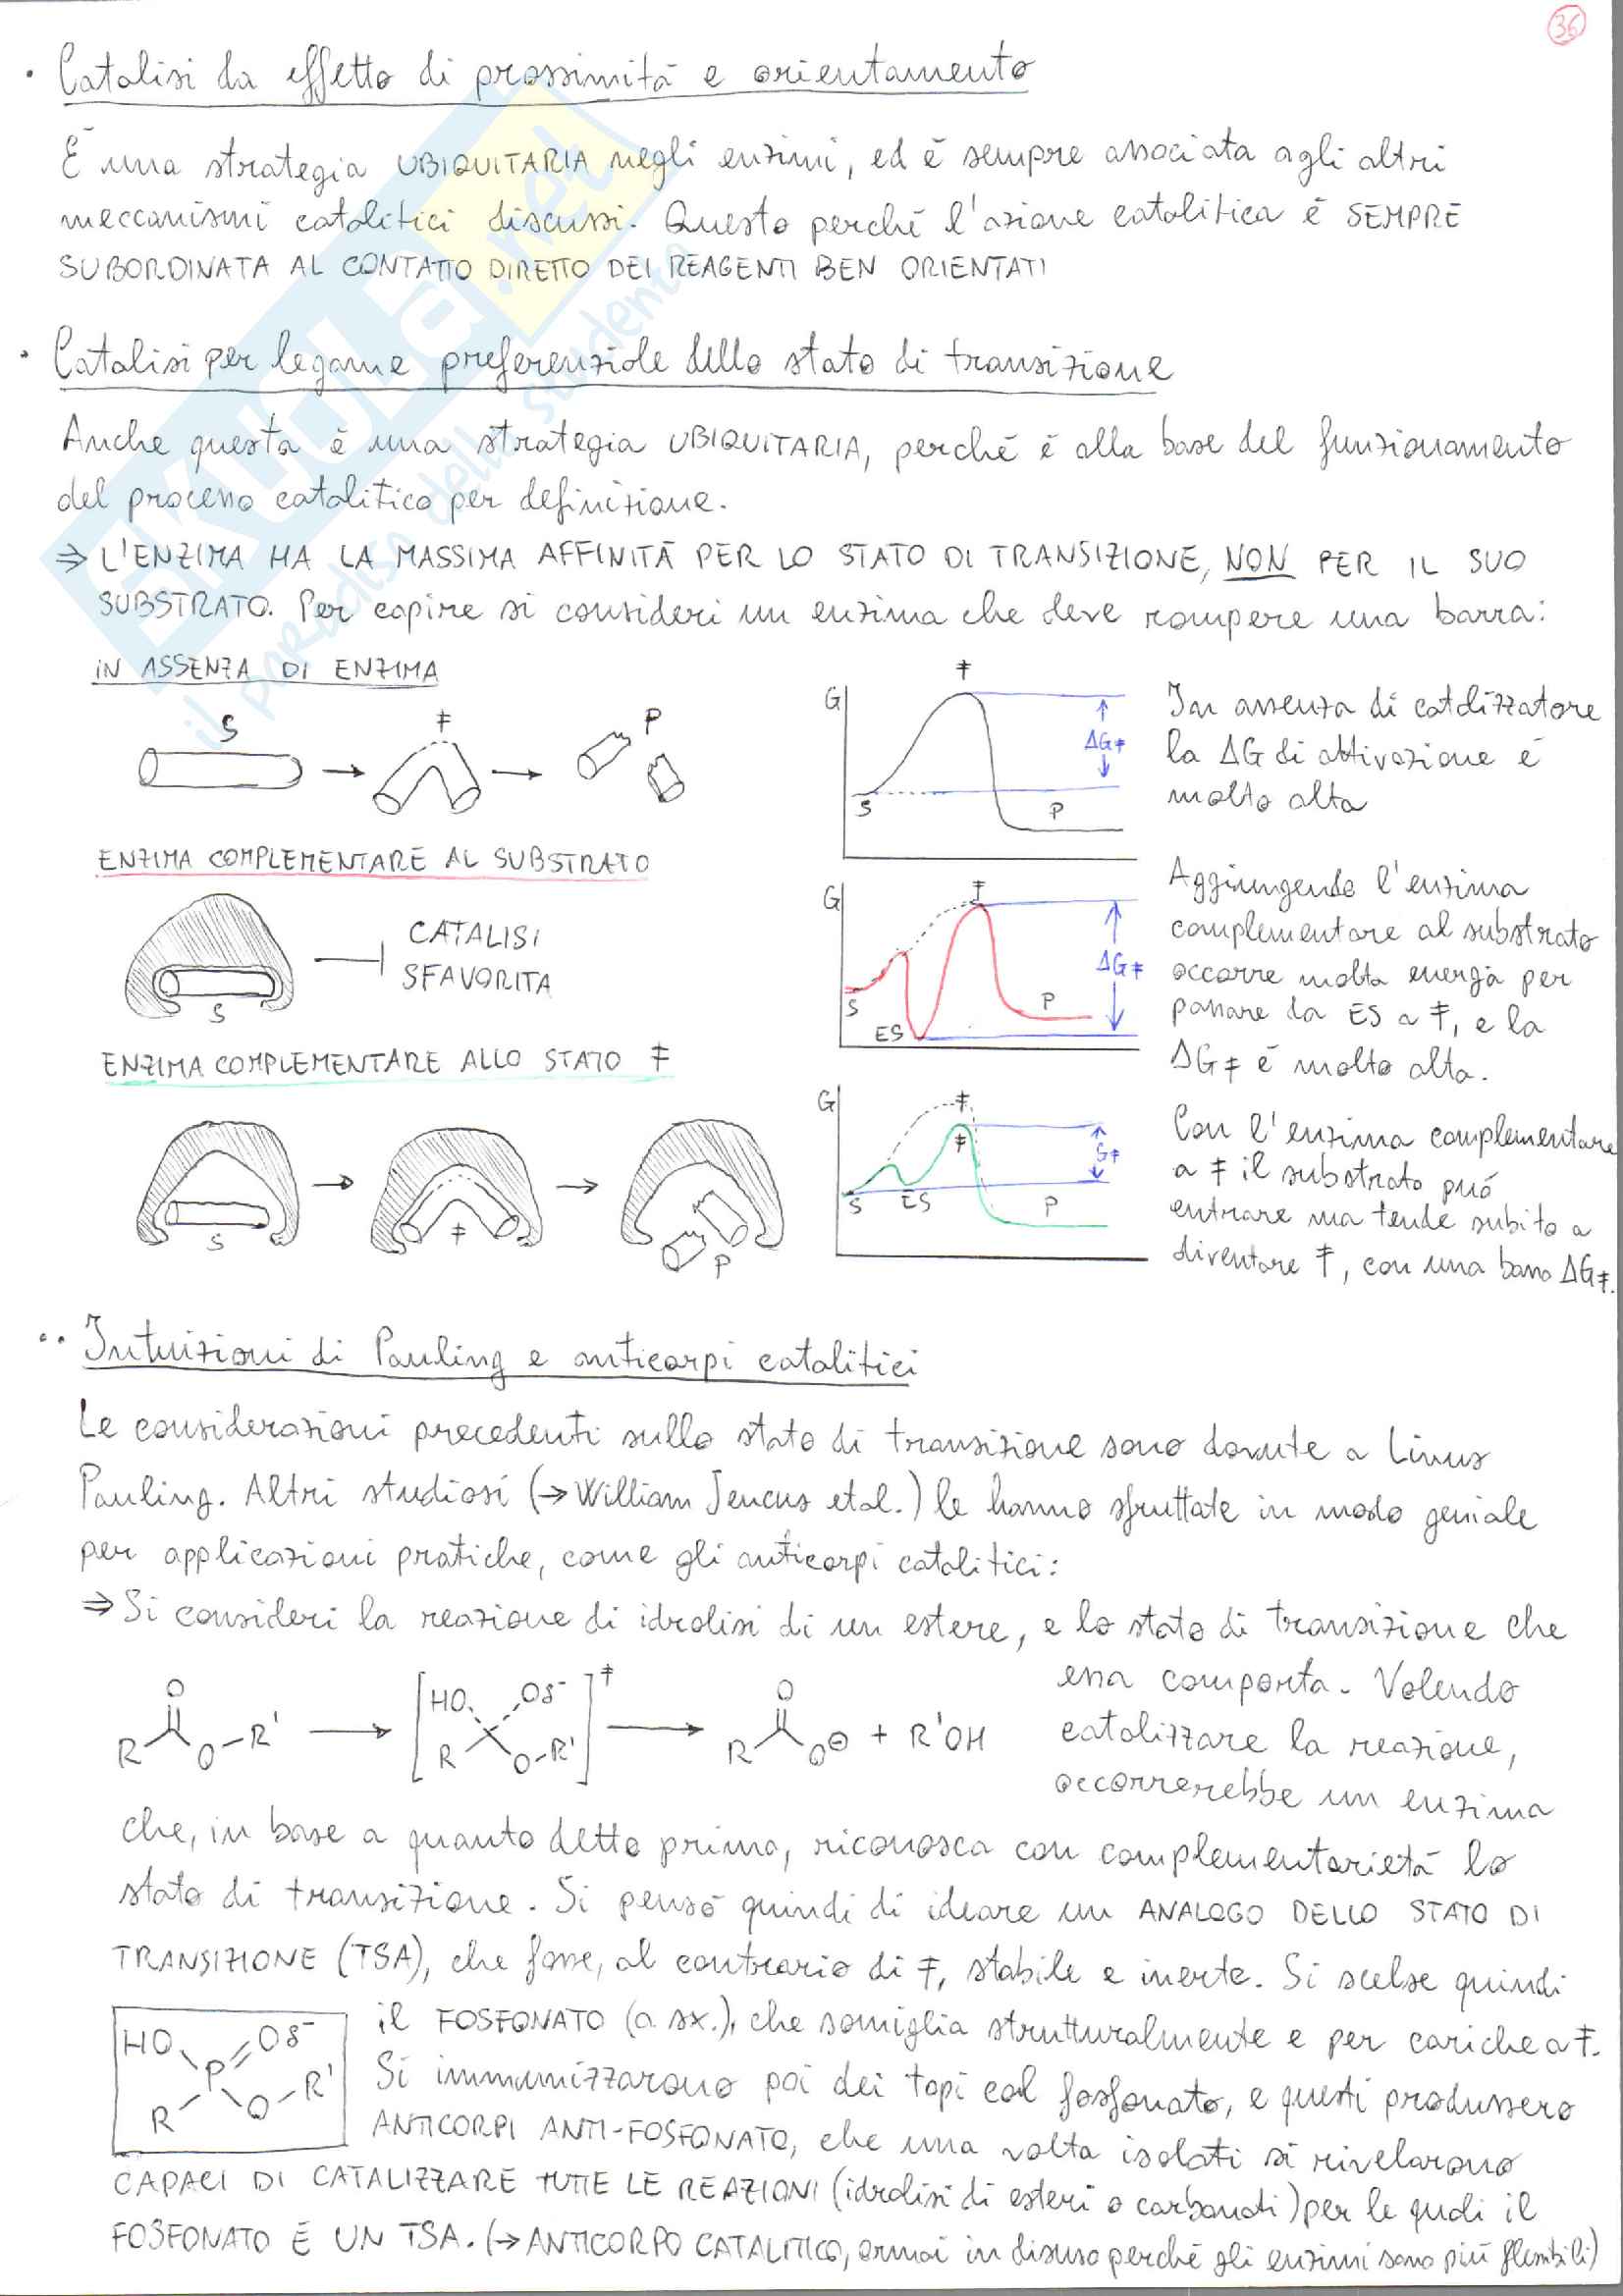 36
• Catalisi da effetto di prossimità e orientamento
È una strategia UBIQUITARIA negli enzimi, ed è sempre associata agli altri
meccanismi catalitici discussi. Questo perché l'azione catalitica è SEMPRE
SUBORDINATA AL CONTATTO DIRETTO DEI REAGENTI BEN ORIENTATI
• Catalisi per legame preferenziale dello stato di transizione
Anche questa è una strategia UBIQUITARIA, perché è alla base del funzionamento
del processo catalitico per definizione.
⇒ L'ENZIMA HA LA MASSIMA AFFINITÀ PER LO STATO DI TRANSIZIONE, NON PER IL SUO
SUBSTRATO. Per capire si consideri un enzima che deve rompere una barra:
IN ASSENZA DI ENZIMA
S → ‡ → P
G ‡ ΔG‡ S P
In assenza di catalizzatore
la ΔG di attivazione è
molto alta
ENZIMA COMPLEMENTARE AL SUBSTRATO
S
CATALISI
SFAVORITA
G ‡ ΔG‡ S ES P
Aggiungendo l'enzima
complementare al substrato
occorre molta energia per
passare da ES a ‡, e la
ΔG‡ è molto alta.
ENZIMA COMPLEMENTARE ALLO STATO ‡
S → ‡ → P
G ‡ ‡ G‡ S ES P
Con l'enzima complementare
a ‡ il substrato può
entrare ma tende subito a
diventare ‡, con una bassa ΔG‡.
•• Intuizioni di Pauling e anticorpi catalitici
Le considerazioni precedenti sullo stato di transizione sono dovute a Linus
Pauling. Altri studiosi (→ William Jencus et al.) le hanno sfruttate in modo geniale
per applicazioni pratiche, come gli anticorpi catalitici:
⇒ Si consideri la reazione di idrolisi di un estere, e lo stato di transizione che
essa comporta. Volendo
catalizzare la reazione,
occorrerebbe un enzima
R O O-R' → [HO Oδ- R O-R']‡ → R O O⊖ + R'OH
che, in base a quanto detto prima, riconosca con complementarietà lo
stato di transizione. Si pensò quindi di ideare un ANALOGO DELLO STATO DI
TRANSIZIONE (TSA), che fosse, al contrario di ‡, stabile e inerte. Si scelse quindi
HO Oδ- P R O-R'
il FOSFONATO (a sx.), che somiglia strutturalmente e per cariche a ‡.
Si immunizzarono poi dei topi col fosfonato, e questi produssero
ANTICORPI ANTI-FOSFONATO, che una volta isolati si rivelarono
CAPACI DI CATALIZZARE TUTTE LE REAZIONI (idrolisi di esteri o carbonati) per le quali il
FOSFONATO È UN TSA. (→ ANTICORPO CATALITICO, ormai in disuso perché gli enzimi sono più flessibili)
SKUOLA.net
il paradiso dello studente